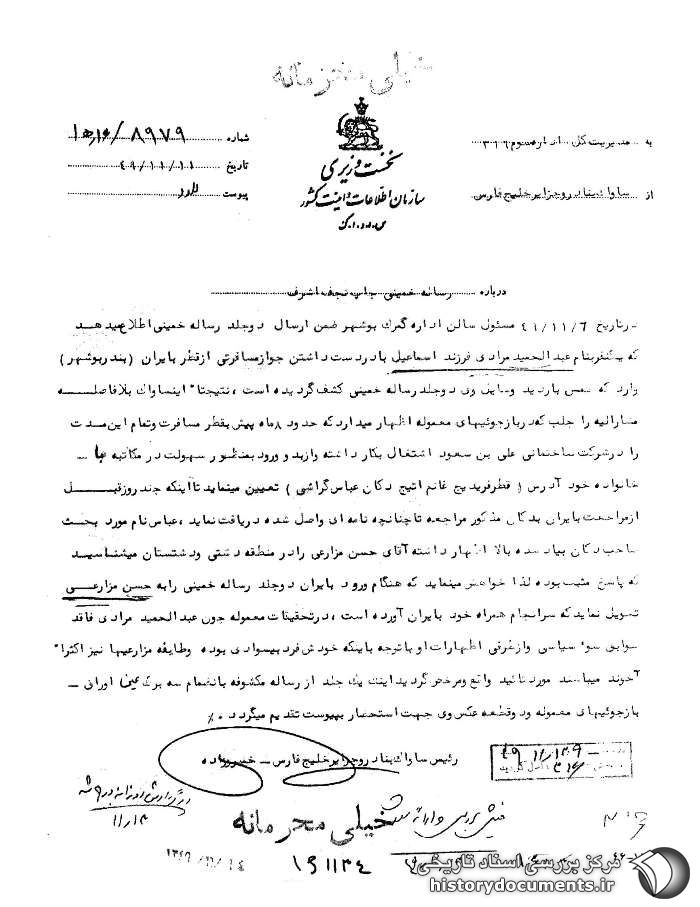 خیلی محرمانه
به مدیریت کل اداره سوم ۳۱۶
از ساواک بنادر و جزایر خلیج فارس
نخست وزیری
سازمان اطلاعات و امنیت کشور
س.ا.و.ا.ک
شماره ۸۹۷۹/
تاریخ ۴۹/۱۱/۱۱
پیوست دارد
درباره رساله خمینی چاپ نجف اشرف
در تاریخ ۴۹/۱۱/۶ مسئول سالن اداره گمرک بوشهر ضمن ارسال دو جلد رساله خمینی اطلاع میدهد
که یکنفر بنام عبدالحمید مرادی فرزند اسماعیل با در دست داشتن جواز مسافرتی از قطر بایران (بندر بوشهر)
وارد که ضمن بازدید وسایل وی دو جلد رساله خمینی کشف گردیده است، نتیجتا" اینساواک بلافاصله
مشارالیه را جلب که در بازجوئیهای معموله اظهار میدارد که حدود ۸ ماه پیش بقطر مسافرت و تمام این مدت
را در شرکت ساختمانی علی بن سعود اشتغال بکار داشته و از بدو ورود بمنظور سهولت در مکاتبه با
خانواده خود آدرس (قطر فریدیج غانم اتیج دکان عباس گراشی) تعیین مینماید تا اینکه چند روز قبل
از مراجعت بایران بدکان مذکور مراجعه تا چنانچه نامه ای واصل شده دریافت نماید، عباس نام مورد بحث
صاحب دکان بیاد شده بالا اظهار داشته آقای حسن مزارعی را در منطقه دشتی و دشتستان میشناسید
که پاسخ مثبت بوده لذا خواهش مینماید که هنگام ورود بایران دو جلد رساله خمینی را به حسن مزارعی
تحویل نماید که سرانجام همراه خود بایران آورده است، در تحقیقات معموله چون عبدالحمید مرادی فاقد
سوابق سوء سیاسی و از طرفی اظهارات او با توجه باینکه خودش فرد بیسوادی بوده و طایفه مزارعیها نیز اکثرا"
آخوند میباشند مورد تائید واقع و مرخص گردید اینک یک جلد از رساله مکشوفه بانضمام سه برگ عین اوراق
بازجوئیهای معموله و دو قطعه عکس وی جهت استحضار بپیوست تقدیم میگردد. ٪
رئیس ساواک بنادر و جزایر خلیج فارس - خسروداده
۱۱/۱۳
خیلی محرمانه
۱۳۴۹/۱۱/۱۴
۱۹۱۱۳۴
مرکز بررسی اسناد تاریخی
historydocuments.ir